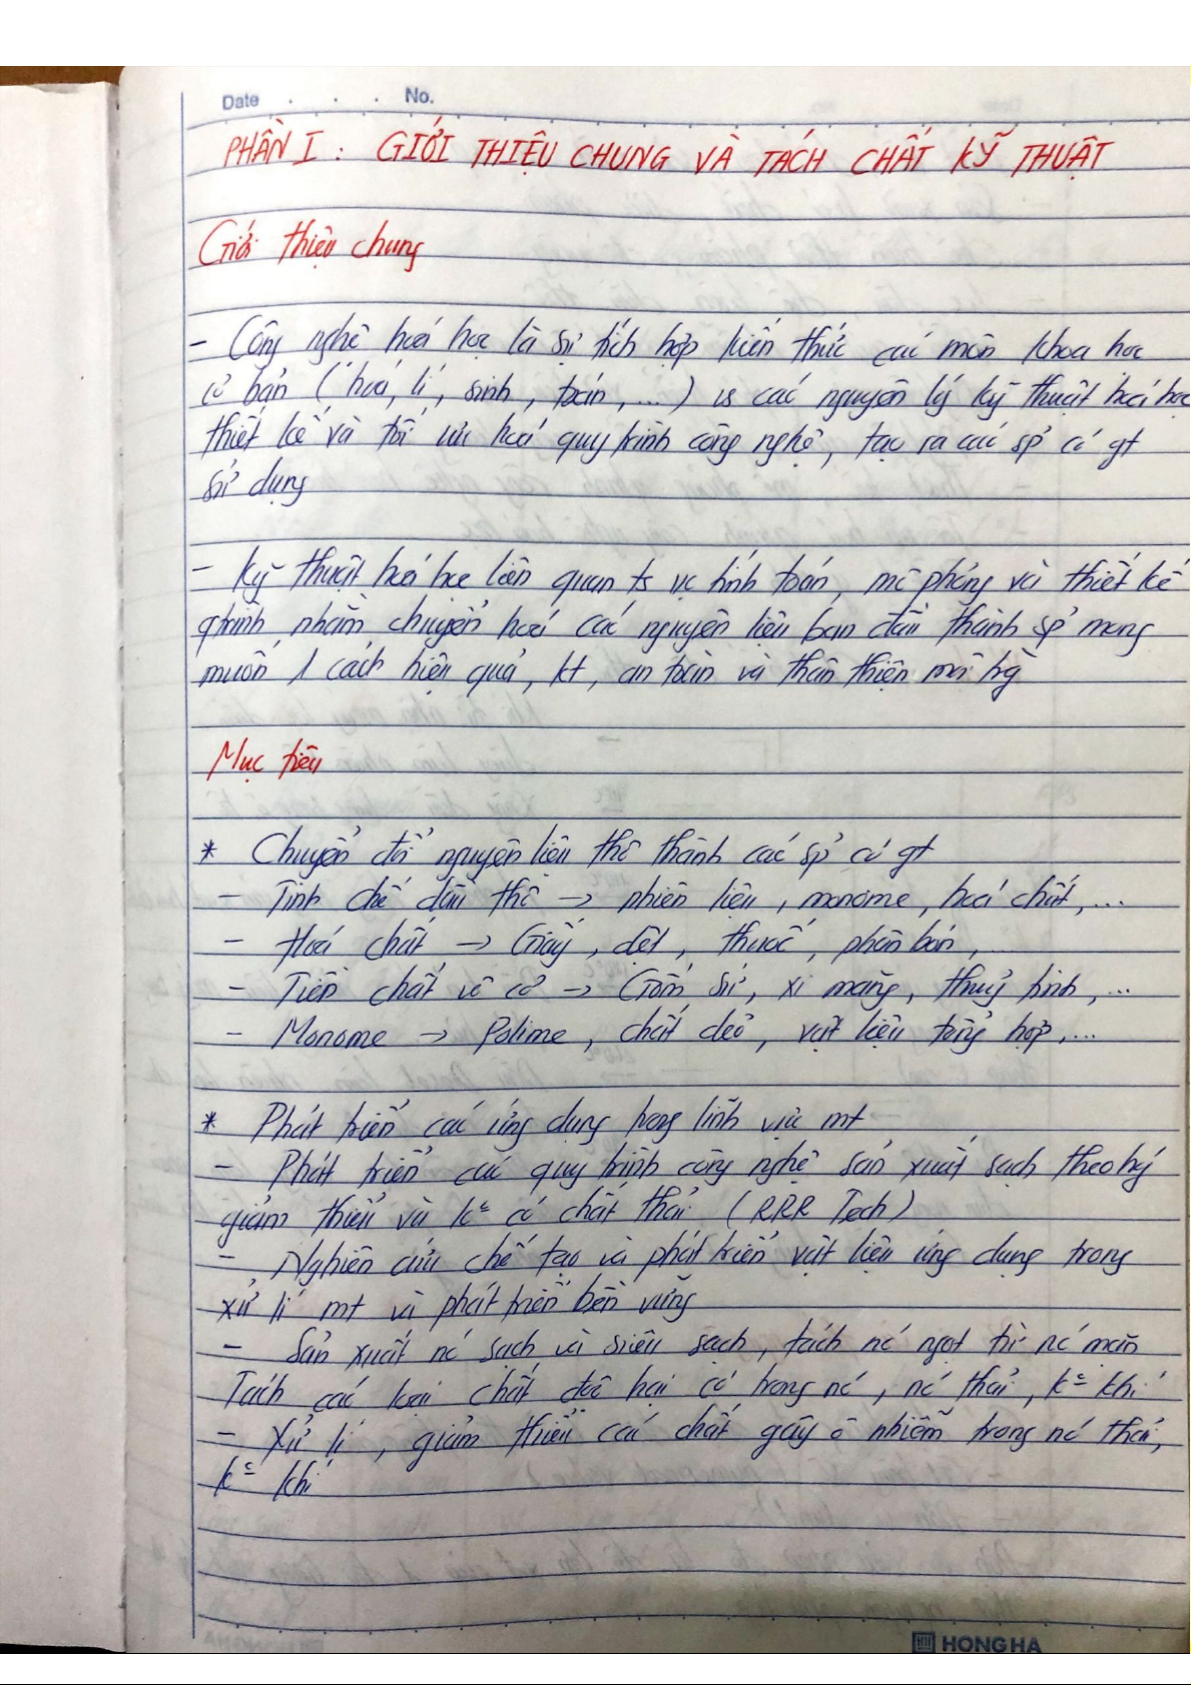 Date . . . No.
PHẦN I : GIỚI THIỆU CHUNG VÀ TÁCH CHẤT KỸ THUẬT
Giới thiệu chung
- Công nghệ hoá học là sự tích hợp kiến thức các môn khoa học
cơ bản (hoá, lí, sinh, toán, ...) vs các nguyên lý kỹ thuật hoá học
thiết kế và tối ưu hoá quy trình công nghệ, tạo ra các sp' có gt
sử dụng
- Kỹ thuật hoá học liên quan ts vc tính toán, mô phỏng và thiết kế
qtrình nhằm chuyển hoá các nguyên liệu ban đầu thành sp' mong
muốn 1 cách hiệu quả, kt, an toàn và thân thiện
Mục tiêu
* Chuyển đổi nguyên liệu thô thành các sp' có gt
- Tinh chế dầu thô → nhiên liệu, monome, hoá chất, ...
- Hoá chất → Giấy, dệt, thuốc, phân bón, ...
- Tiền chất vô cơ → Gốm sứ, xi măng, thuỷ tinh, ...
- Monome → Polime, chất dẻo, vật liệu tổng hợp, ...
* Phát triển các ứng dụng trong lĩnh vực mt
- Phát triển các quy trình công nghệ sản xuất sạch theo
giảm thiểu và k= có chất thải (RRR Tech)
- Nghiên cứu chế tạo và phát triển vật liệu ứng dụng trong
xử lí mt và phát triển bền vững
- Sản xuất nc sạch và siêu sạch, tách nc ngọt từ nc mặn
Tách các loại chất độc hại có trong nc, nc thải, k= khí
- Xử lí, giảm thiểu các chất gây ô nhiễm trong nc thải,
k= khí
HONG HA